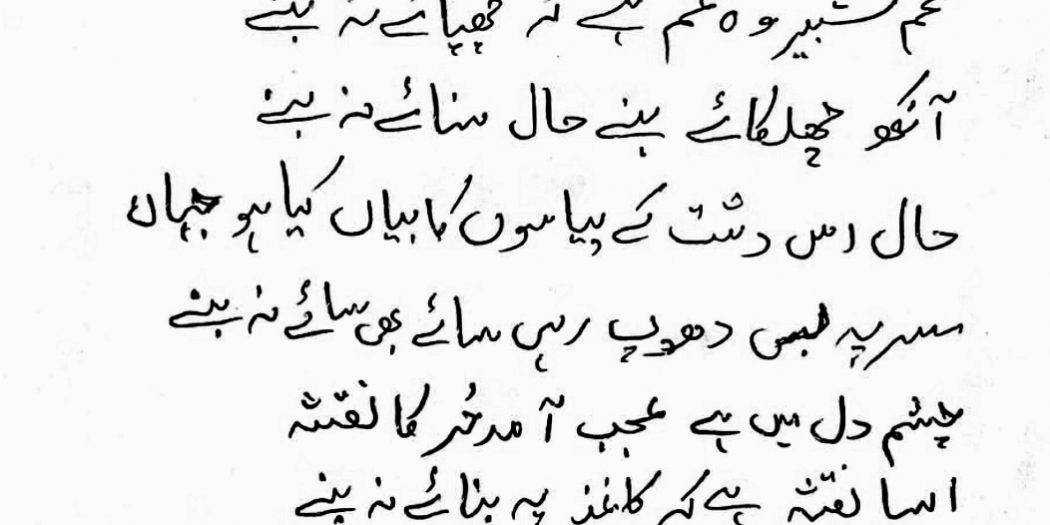 غم شبیر وہ غم ہے کہ چھپائے نہ بنے
آنکھ چھلکائے بنے حال سنائے نہ بنے
حال اس دشت کے پیاسوں کا بیاں کیا ہو جہاں
سر پہ بس دھوپ رہی سائے بھی سائے نہ بنے
چشم دل میں ہے عجب آمد حُر کا نقشہ
ایسا نقشہ ہے کہ کاغذ پہ بنائے نہ بنے